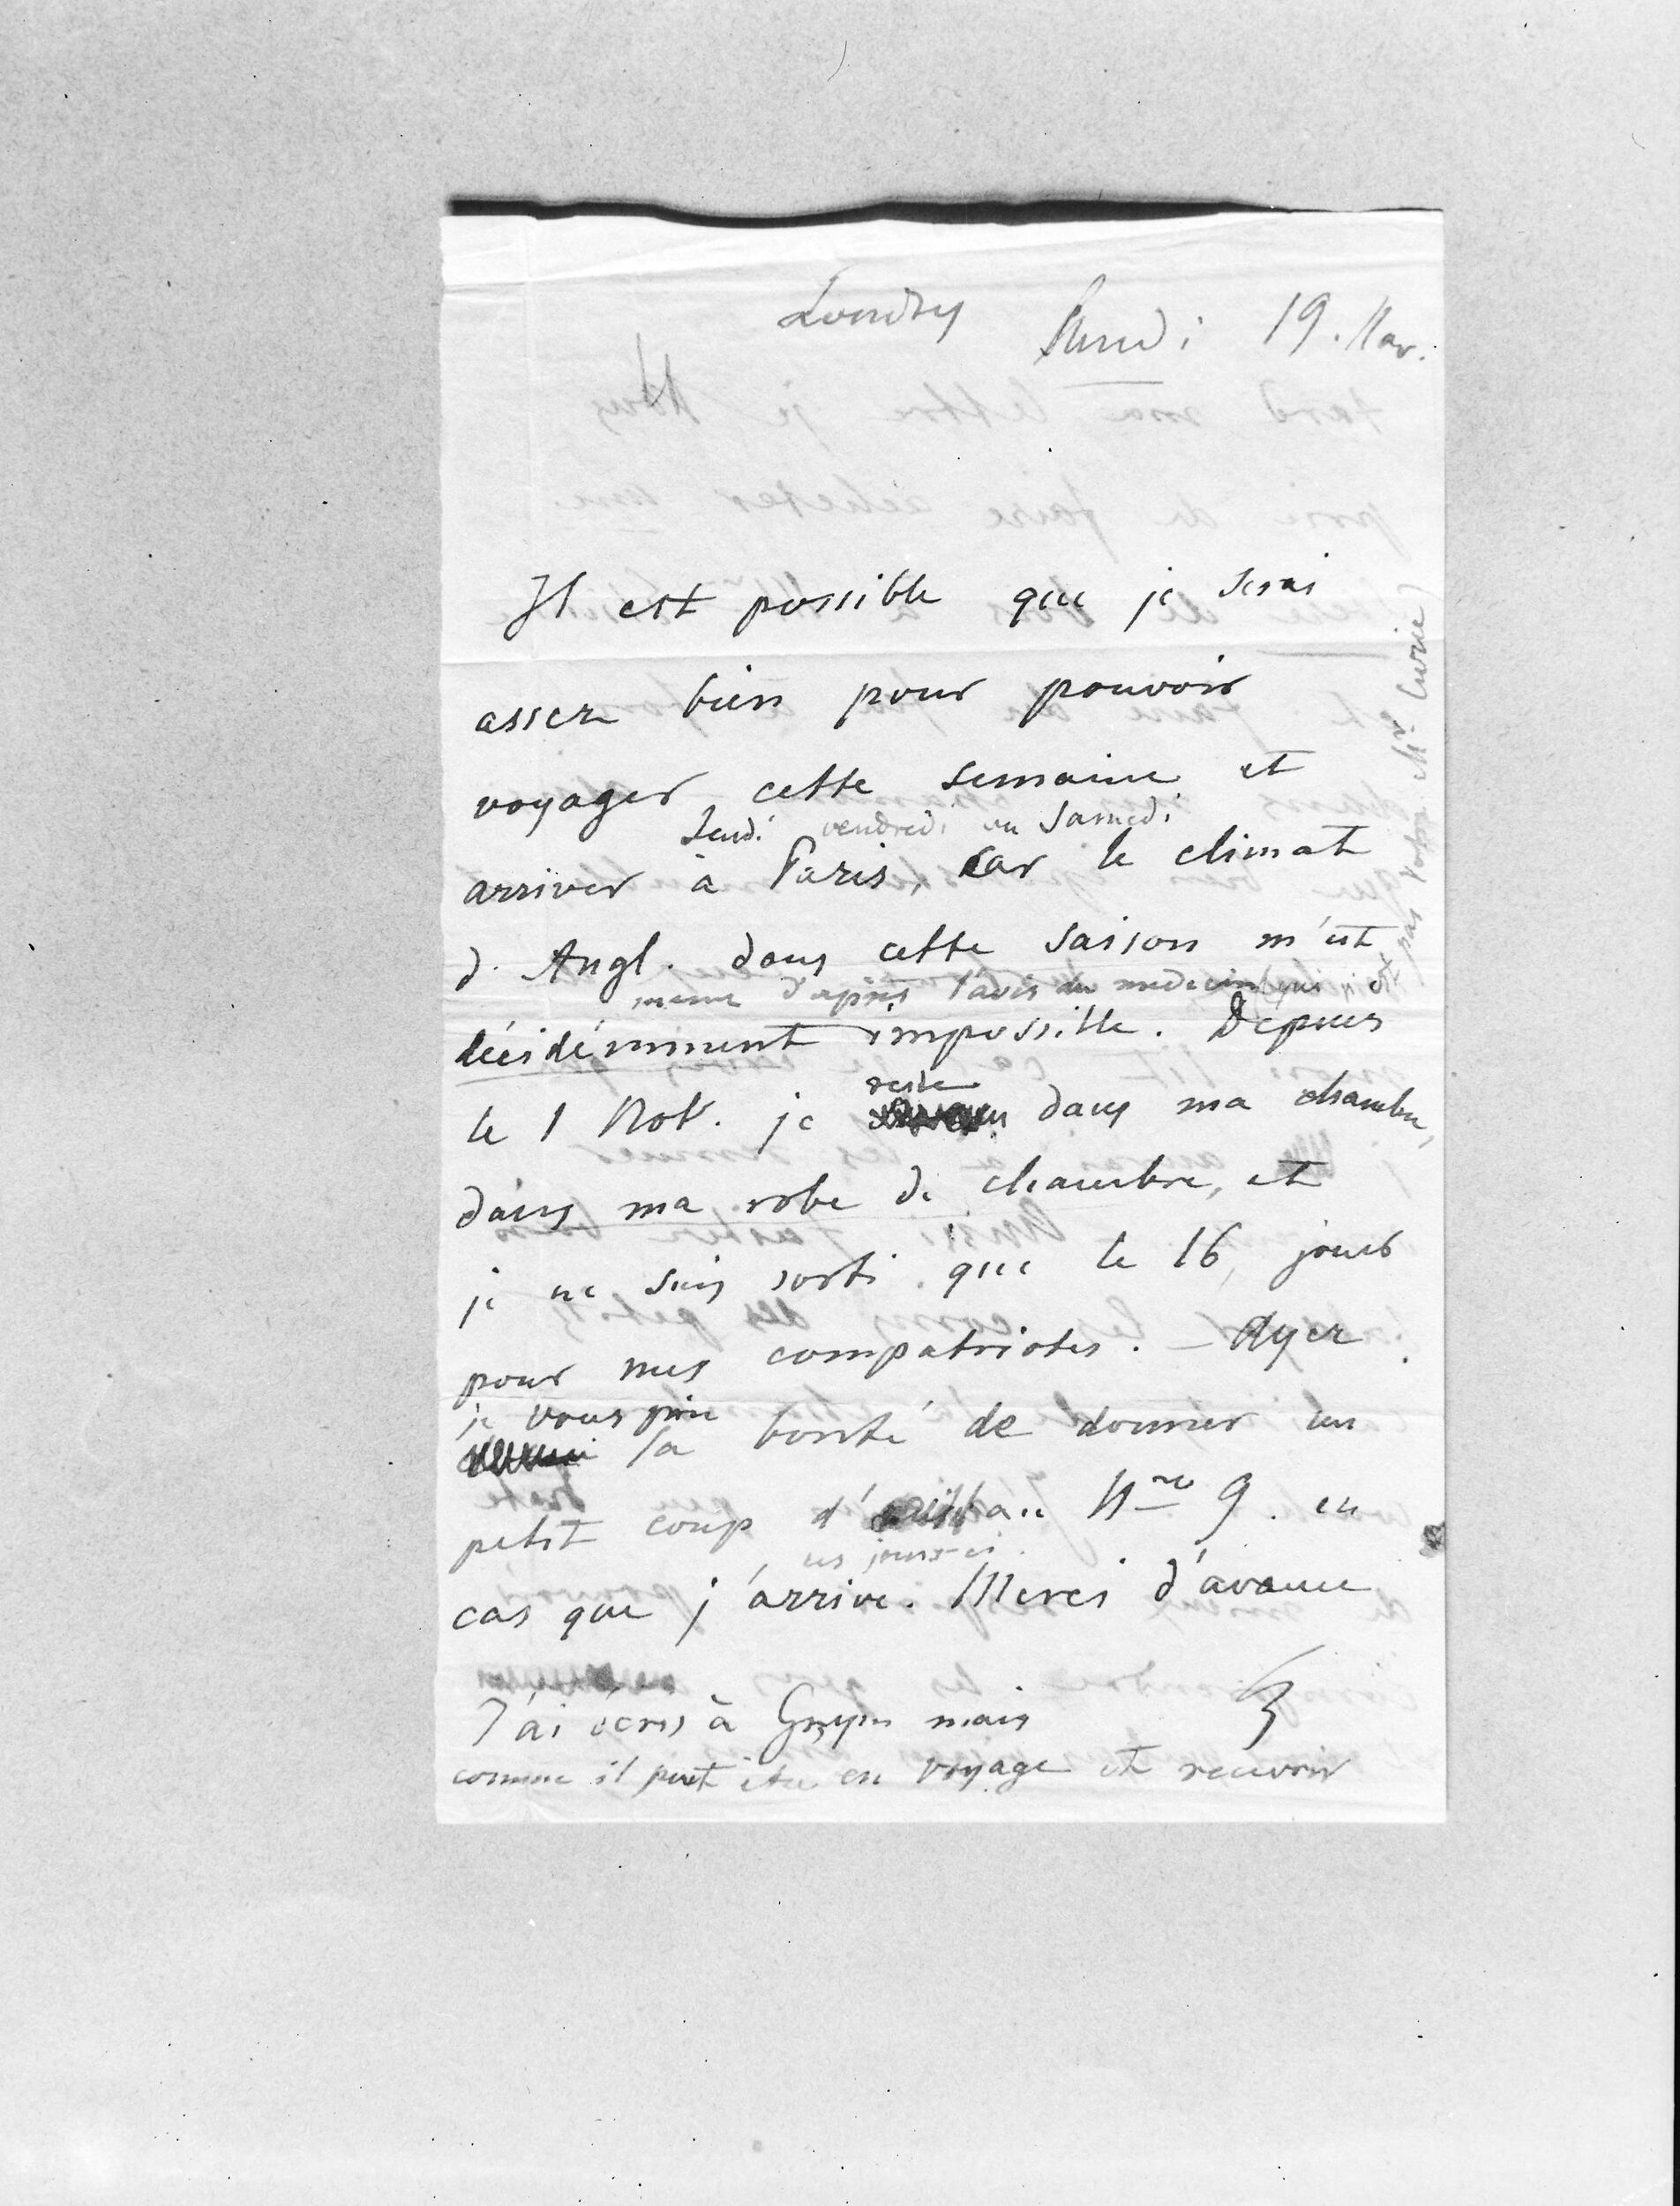 Londres Lundi 19. Nov.
Il est possible que je serai
assez bien pour pouvoir
voyager cette semaine et
Jeudi vendredi ou Samedi
arriver à Paris, car le climat
d'Angl. dans cette saison m'est
même d'après l'avis du medecin (qui n'est pas votre Mr Curie)
décidémment impossible. Depuis
reste
le 1 Nov. je dans ma chambre,
dans ma robe de chambre, et
je ne suis sorti que le 16, jouer
pour mes compatriotes. – Ayez
je vous prie
la bonté de donner un
petit coup d' au Nro 9. en
ces jours-ci
cas que j'arrive. Merci d'avance
J'ai écris à Grzym mais
comme il peut être en voyage et recevoir